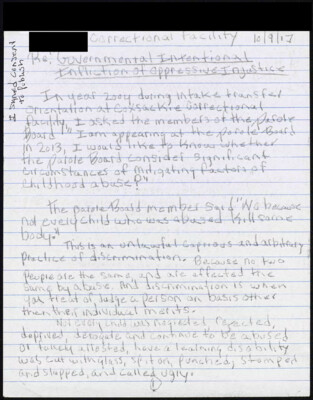 Correctional facility 6/9/17
I signed consent to publish
Re: Governmental Intentional
Infliction of oppressive Injustice
In year 2004 during intake transfer
orientation at Coxsackie Correctional
Facility, I asked the members of the Parole
Board "I am appearing at the parole Board
in 2013, I would like to know whether
the parole Board consider significant
circumstances of mitigating factors of
childhood abuse?"
The parole Board member said "No because
not every child who was abused kill some
body."
This is an unlawful capricous and arbitrary
practice of discrimination. Because no two
people are the same, and are affected the
same by abuse. And discrimination is when
you treat or, judge a person on basis other
than their individual merits.
Not every child was neglected, rejected,
deprived, derogate and continue to be abused
or falsely arrested, have a learning disability
was cut with glass, spit on, punched, stomped
and slapped, and called ugly.
1